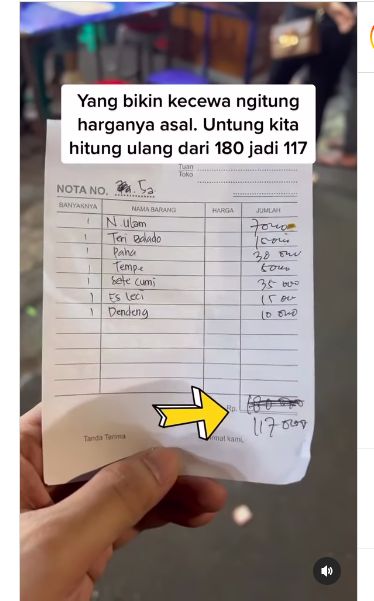 Yang bikin kecewa ngitung
harganya asal. Untung kita
hitung ulang dari 180 jadi 117
Tuan
Toko
NOTA NO. 5a
BANYAKNYA NAMA BARANG HARGA JUMLAH
1 N. Ulam 7000
1 Teri Balado 15000
1 Paha 30 000
1 Tempe 5000
1 Sate Cumi 35 000
1 Es Leci 15 000
1 Dendeng 10 000
Rp. 180 000
117 000
Tanda Terima Hormat kami,